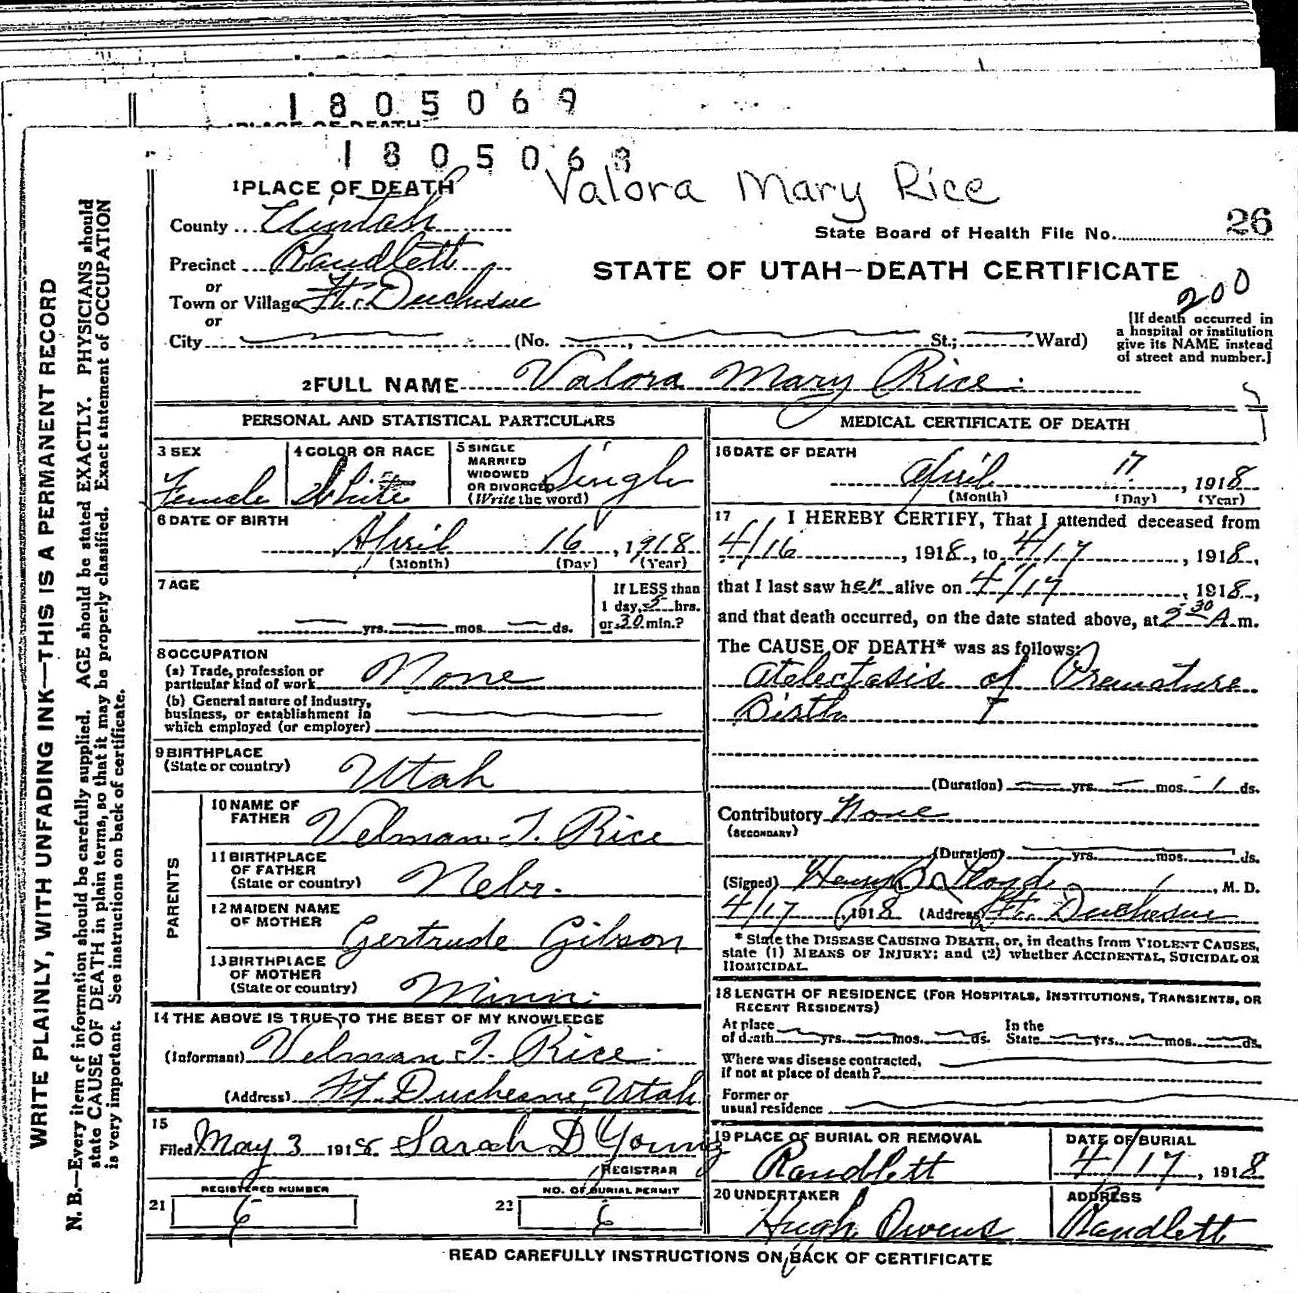 1805069
1805068
Valora Mary Rice
1 PLACE OF DEATH
County Uintah
State Board of Health File No. 26
Precinct Randlett
STATE OF UTAH—DEATH CERTIFICATE
or
Town or Village Ft. Duchesne
200
or
City (No. St.; Ward)
[If death occurred in
a hospital or institution
give its NAME instead
of street and number.]
2 FULL NAME Valora Mary Rice.
PERSONAL AND STATISTICAL PARTICULARS
3 SEX Female
4 COLOR OR RACE White
5 SINGLE
MARRIED
WIDOWED
OR DIVORCED
(Write the word) Single
6 DATE OF BIRTH
April 16, 1918
(Month) (Day) (Year)
7 AGE
yrs. mos. ds.
If LESS than
1 day, 5 hrs.
or 30 min.?
8 OCCUPATION
(a) Trade, profession or
particular kind of work None
(b) General nature of Industry,
business, or establishment in
which employed (or employer)
9 BIRTHPLACE
(State or country) Utah
PARENTS
10 NAME OF
FATHER Velman T. Rice
11 BIRTHPLACE
OF FATHER
(State or country) Nebr.
12 MAIDEN NAME
OF MOTHER Gertrude Gilson
13 BIRTHPLACE
OF MOTHER
(State or country) Minn.
14 THE ABOVE IS TRUE TO THE BEST OF MY KNOWLEDGE
(Informant) Velman T. Rice.
(Address) Ft. Duchesne, Utah
15
Filed May 3 1918 Sarah D Young
REGISTRAR
REGISTERED NUMBER
21 6
NO. OF BURIAL PERMIT
22 6
MEDICAL CERTIFICATE OF DEATH
16 DATE OF DEATH
April 17, 1918
(Month) (Day) (Year)
17 I HEREBY CERTIFY, That I attended deceased from
4/16, 1918, to 4/17, 1918,
that I last saw her alive on 4/17, 1918,
and that death occurred, on the date stated above, at 2 30 A. m.
The CAUSE OF DEATH* was as follows:
Atelectasis of Premature
Birth
(Duration) yrs. mos. 1 ds.
Contributory None
(SECONDARY)
(Duration) yrs. mos. ds.
(Signed) Henry B. Lloyd, M. D.
4/17, 1918 (Address) Ft. Duchesne
* State the DISEASE CAUSING DEATH, or, in deaths from VIOLENT CAUSES,
state (1) MEANS OF INJURY; and (2) whether ACCIDENTAL, SUICIDAL OR
HOMICIDAL.
18 LENGTH OF RESIDENCE (FOR HOSPITALS, INSTITUTIONS, TRANSIENTS, OR
RECENT RESIDENTS)
At place
of death yrs. mos. ds.
In the
State yrs. mos. ds.
Where was disease contracted,
if not at place of death?
Former or
usual residence
19 PLACE OF BURIAL OR REMOVAL
Randlett
DATE OF BURIAL
4/17, 1918
20 UNDERTAKER
Hugh Owens
ADDRESS
Randlett
READ CAREFULLY INSTRUCTIONS ON BACK OF CERTIFICATE
WRITE PLAINLY, WITH UNFADING INK—THIS IS A PERMANENT RECORD
N. B.—Every item of information should be carefully supplied. AGE should be stated EXACTLY. PHYSICIANS should
state CAUSE OF DEATH in plain terms, so that it may be properly classified. Exact statement of OCCUPATION
is very important. See instructions on back of certificate.